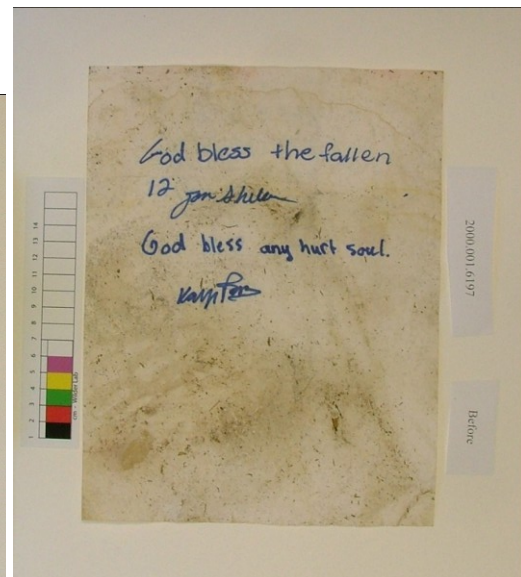 God bless the fallen
12
God bless any hurt soul.
2000.001.6197
Before
1 2 3 4 5 6 7 8 9 10 11 12 13 14